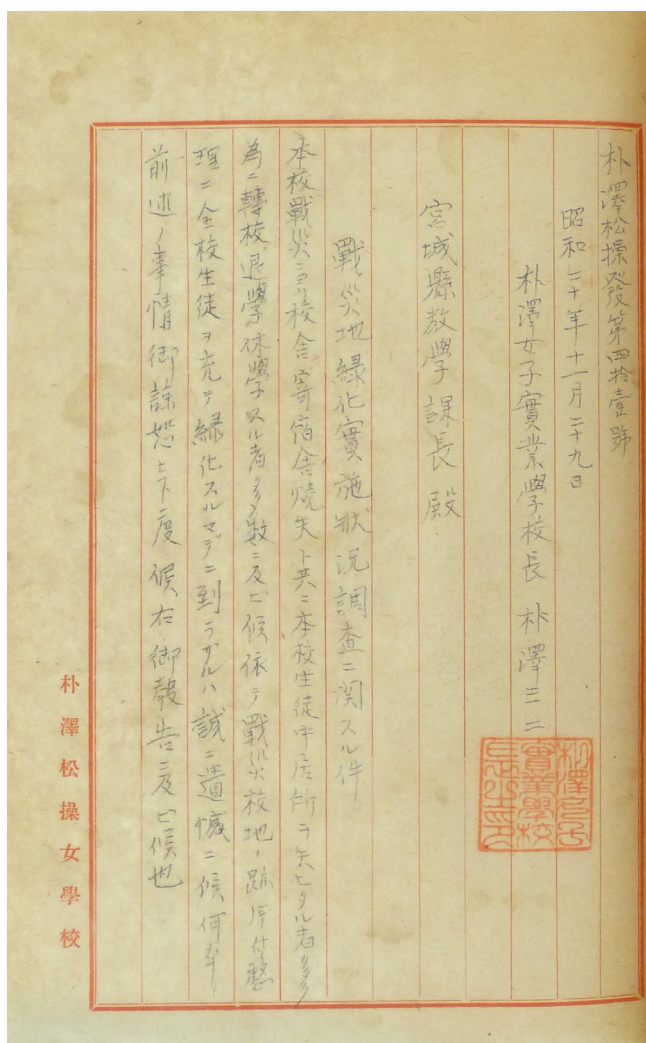 朴澤松操發第四拾壹號
昭和二十年十一月二十九日
朴澤女子實業學校長 朴澤三二
宮城縣教學課長殿
戰災地緑化實施狀況調査ニ関スル件
本校戰災ニヨリ校舎寄宿舎燒失ト共ニ本校生徒中居所ヲ失ヒタル者多ク
為ニ轉校、退學休學スル者多数ニ及ビ候依テ戰災校地ノ跡片付整
理ニ全校生徒ヲ充テ緑化スルマデニ到ラザルハ誠ニ遺憾ニ候何卒
前述ノ事情御諒恕被下度候右御報告ニ及ビ候也
朴澤女子
實業學校
長之印
朴澤松操女學校